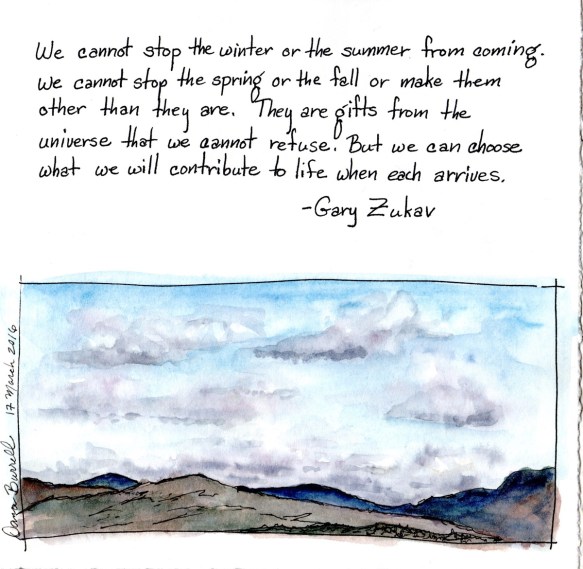 We cannot stop the winter or the summer from coming.
We cannot stop the spring or the fall or make them
other than they are. They are gifts from the
universe that we cannot refuse. But we can choose
what we will contribute to life when each arrives.
-Gary Zukav
Dana Burrell 17 March 2016